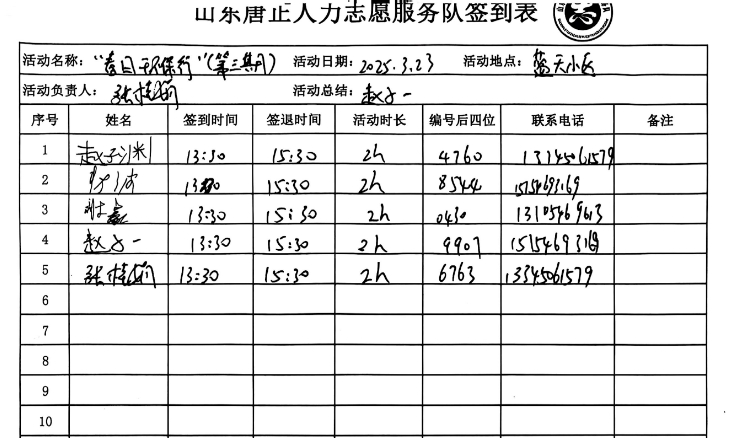 山东唐正人力志愿服务队签到表
活动名称：“春日环保行”(第三期) 活动日期：2025.3.23 活动地点：蓝天小区
活动负责人： 活动总结：赵子一
序号 姓名 签到时间 签退时间 活动时长 编号后四位 联系电话 备注
1 13:30 15:30 2h 4760
2 15:30 2h 8544 15154693169
3 13:30 15:30 2h 0430
4 赵子一 13:30 15:30 2h 9907 15154693169
5 13:30 15:30 2h 6763 13345061579
6
7
8
9
10